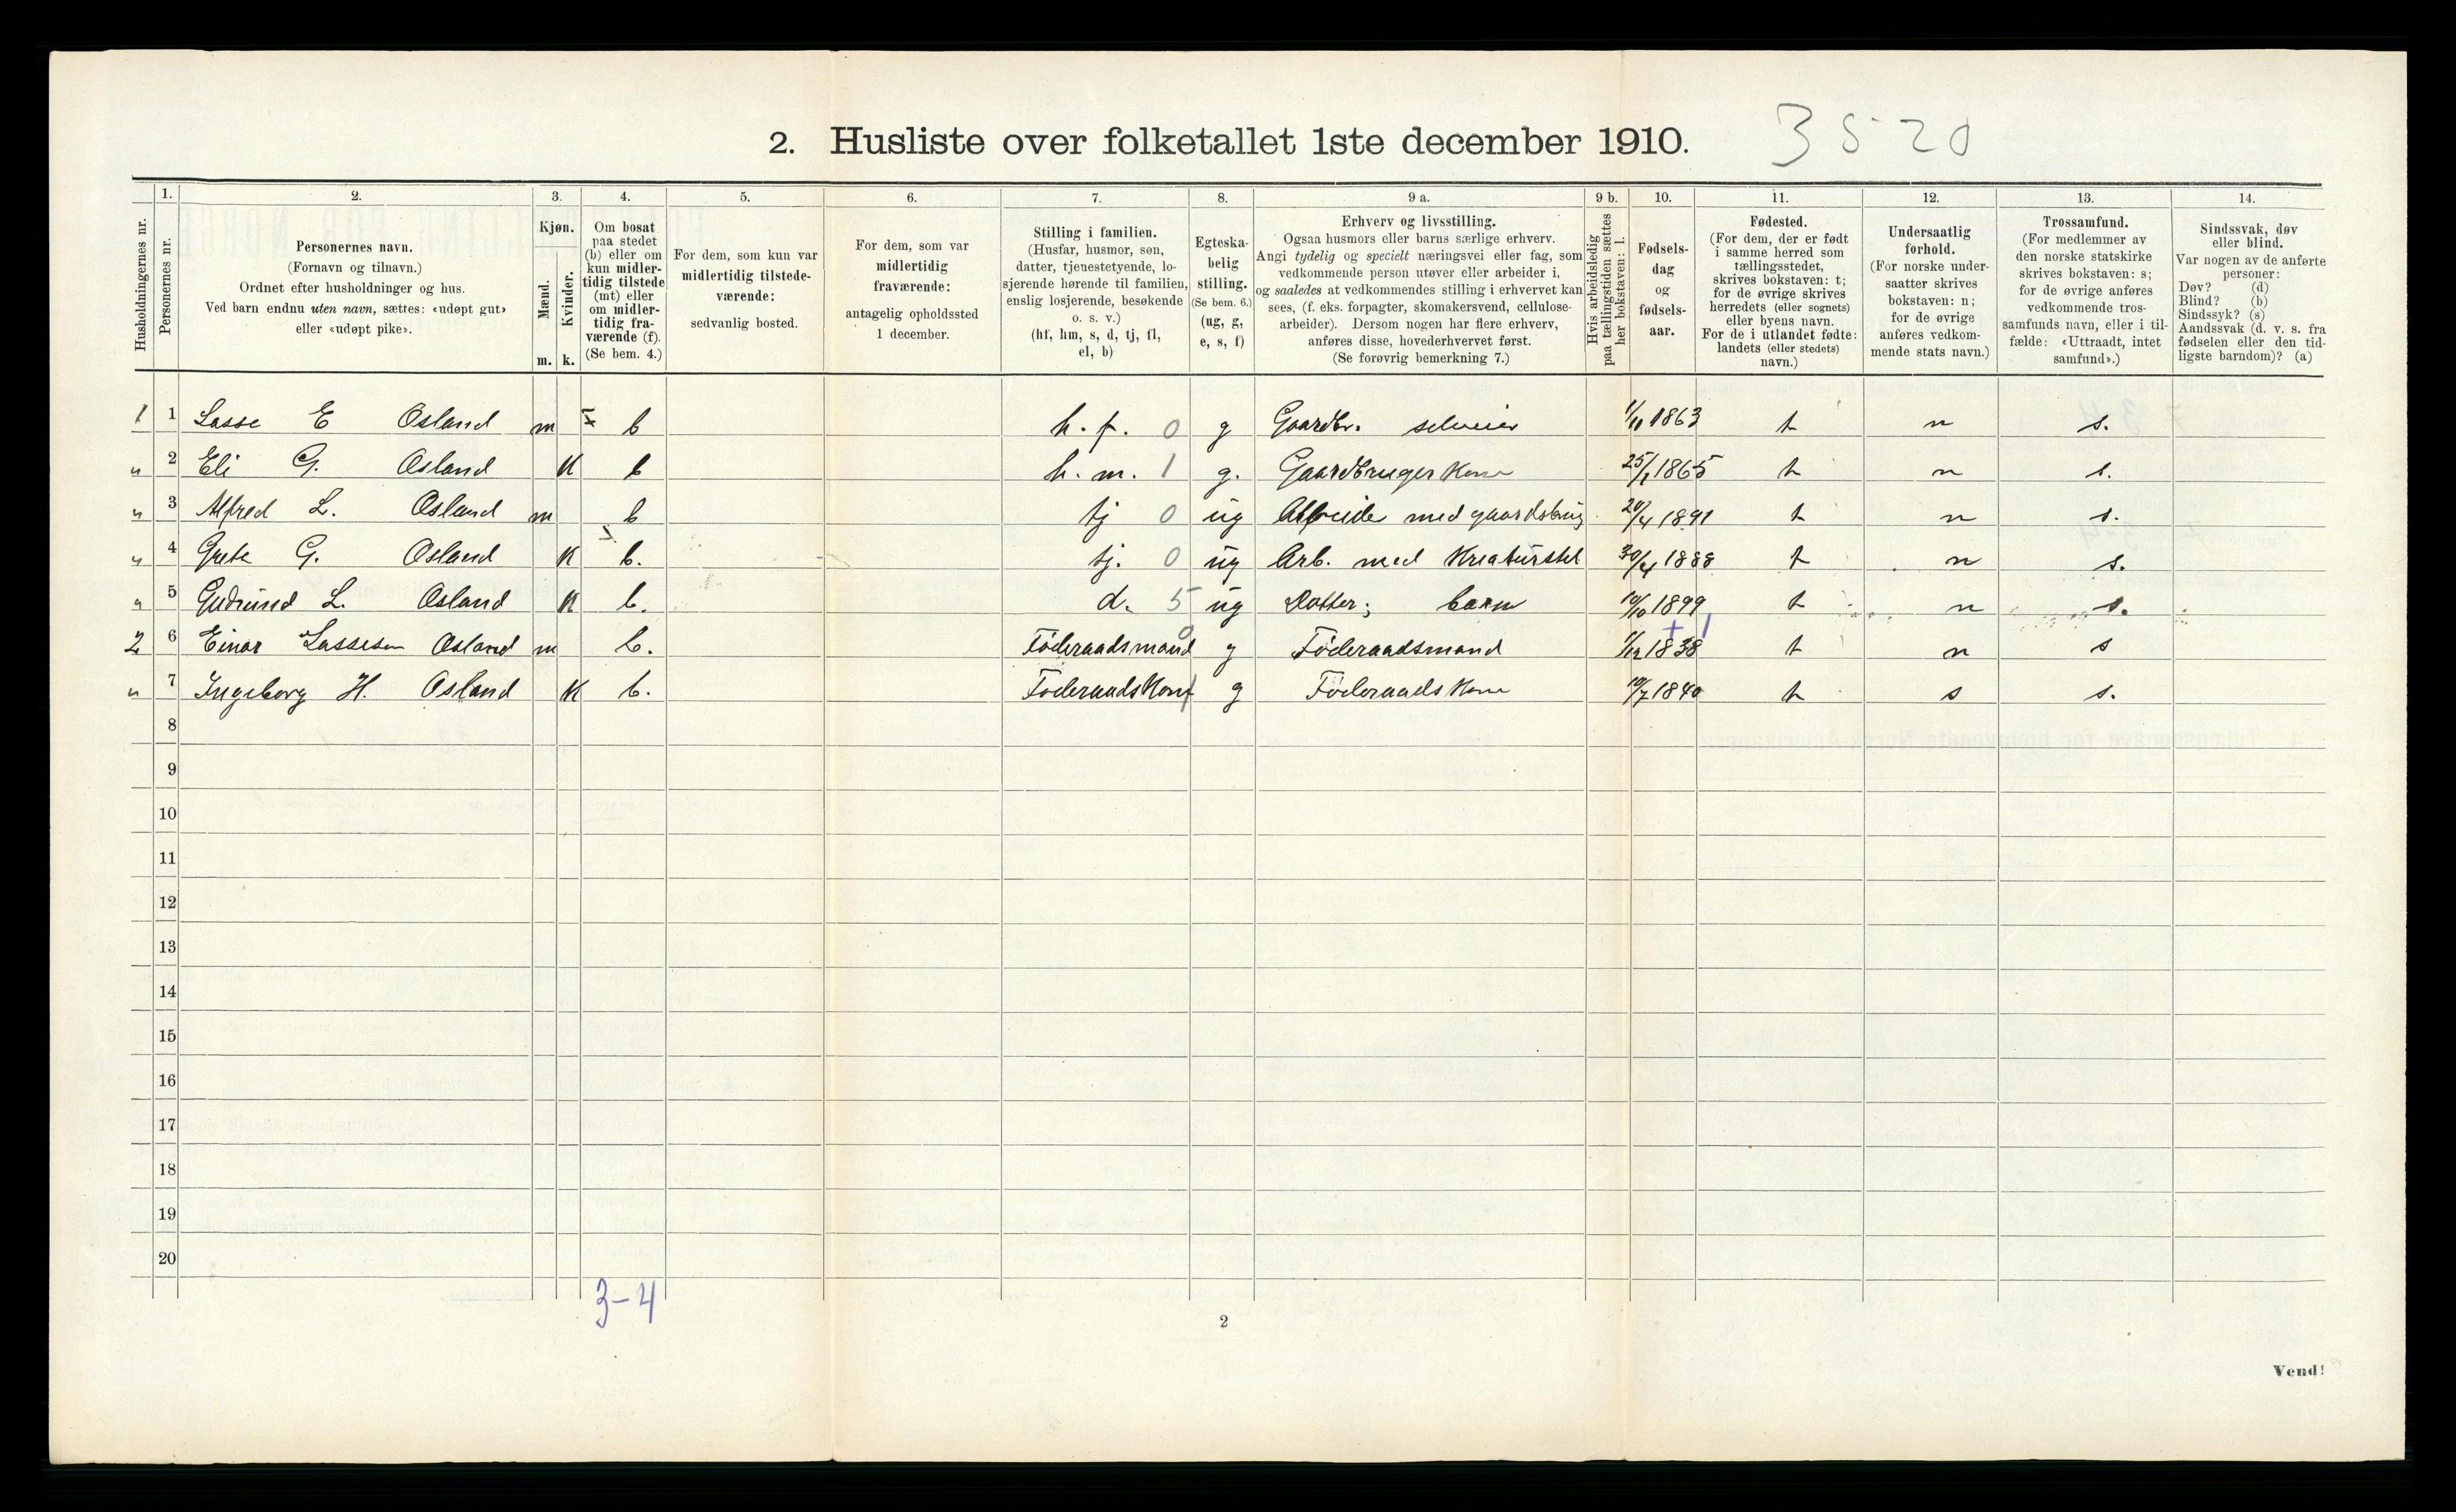 2. Husliste over folketallet 1ste december 1910. 3520
1. 2. 3. 4. 5. 6. 7. 8. 9 a. 9 b. 10. 11. 12. 13. 14.
Husholdningernes nr.
Personernes nr.
Personernes navn.
(Fornavn og tilnavn.)
Ordnet efter husholdninger og hus.
Ved barn endnu uten navn, sættes: «udøpt gut»
eller «udøpt pike».
Kjøn.
Mænd.
Kvinder.
m. k.
Om bosat
paa stedet
(b) eller om
kun midler-
tidig tilstede
(mt) eller
om midler-
tidig fra-
værende (f).
(Se bem. 4.)
For dem, som kun var
midlertidig tilstede-
værende:
sedvanlig bosted.
For dem, som var
midlertidig
fraværende:
antagelig opholdssted
1 december.
Stilling i familien.
(Husfar, husmor, søn,
datter, tjenestetyende, lo-
sjerende hørende til familien,
enslig losjerende, besøkende
o. s. v.)
(hf, hm, s, d, tj, fl,
el, b)
Egteska-
belig
stilling.
(Se bem. 6.)
(ug, g,
e, s, f)
Erhverv og livsstilling.
Ogsaa husmors eller barns særlige erhverv.
Angi tydelig og specielt næringsvei eller fag, som
vedkommende person utøver eller arbeider i,
og saaledes at vedkommendes stilling i erhvervet kan
sees, (f. eks. forpagter, skomakersvend, cellulose-
arbeider). Dersom nogen har flere erhverv,
anføres disse, hovederhvervet først.
(Se forøvrig bemerkning 7.)
Hvis arbeidsledig
paa tællingstiden sættes
her bokstaven: l.
Fødsels-
dag
og
fødsels-
aar.
Fødested.
(For dem, der er født
i samme herred som
tællingsstedet,
skrives bokstaven: t;
for de øvrige skrives
herredets (eller sognets)
eller byens navn.
For de i utlandet fødte:
landets (eller stedets)
navn.)
Undersaatlig
forhold.
(For norske under-
saatter skrives
bokstaven: n;
for de øvrige
anføres vedkom-
mende stats navn.)
Trossamfund.
(For medlemmer av
den norske statskirke
skrives bokstaven: s;
for de øvrige anføres
vedkommende tros-
samfunds navn, eller i til-
fælde: «Uttraadt, intet
samfund».)
Sindssvak, døv
eller blind.
Var nogen av de anførte
personer:
Døv? (d)
Blind? (b)
Sindssyk? (s)
Aandssvak (d. v. s. fra
fødselen eller den tid-
ligste barndom)? (a)
1 1 Lasse E Osland m b h. f. 0 g Gaardbr. selveier 1/11 1863 t n s.
" 2 Eli G. Osland K b h. m. 1 g. Gaardbruger Kone 25/1 1865 t n s.
" 3 Alfred L. Osland m b tj 0 ug Arbeide med gaardsbrug 20/4 1891 t n s.
" 4 Grete G. Osland K b. tj. 0 ug Arb. med Kreaturstel 30/4 1888 t n s.
" 5 Gudrund L. Osland K b. d. 5 ug Datter; barn 10/10 1899 t n s.
2 6 Einar Lassesen Osland m b. Föderaadsmand 0 g Föderaadsmand 1/12 1838 t n s
" 7 Ingeborg H. Osland K b. Föderaads Kone g Föderaads Kone 10/7 1840 t s s.
8
9
10
11
12
13
14
15
16
17
18
19
20
3-4
2
Vend!